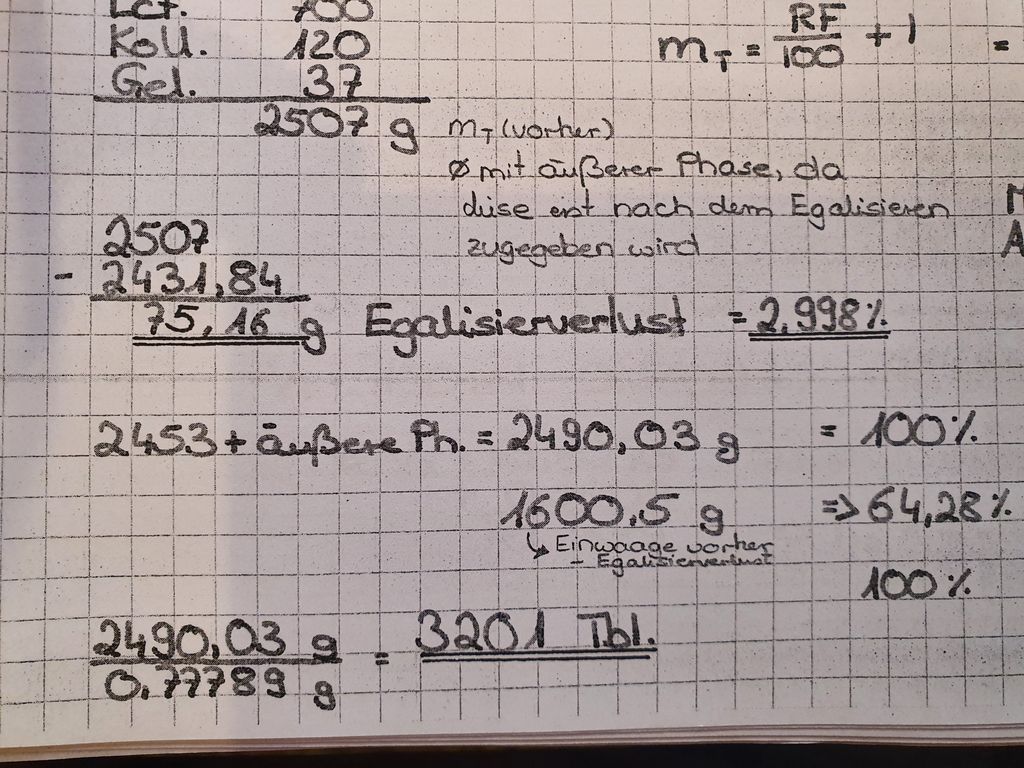 Lct. 700
Koll. 120
Gel. 37
2507 g
m_T = RF/100 + 1 =
m_T (vorher)
Ø mit äußerer Phase, da
diese erst nach dem Egalisieren
zugegeben wird
2507
- 2431,84
75,16 g Egalisierverlust = 2,998%
2453 + äußere Ph. = 2490,03 g = 100%
1600,5 g => 64,28%
↳ Einwaage vorher
- Egalisierverlust
100%
2490,03 g / 0,77789 g = 3201 Tbl.